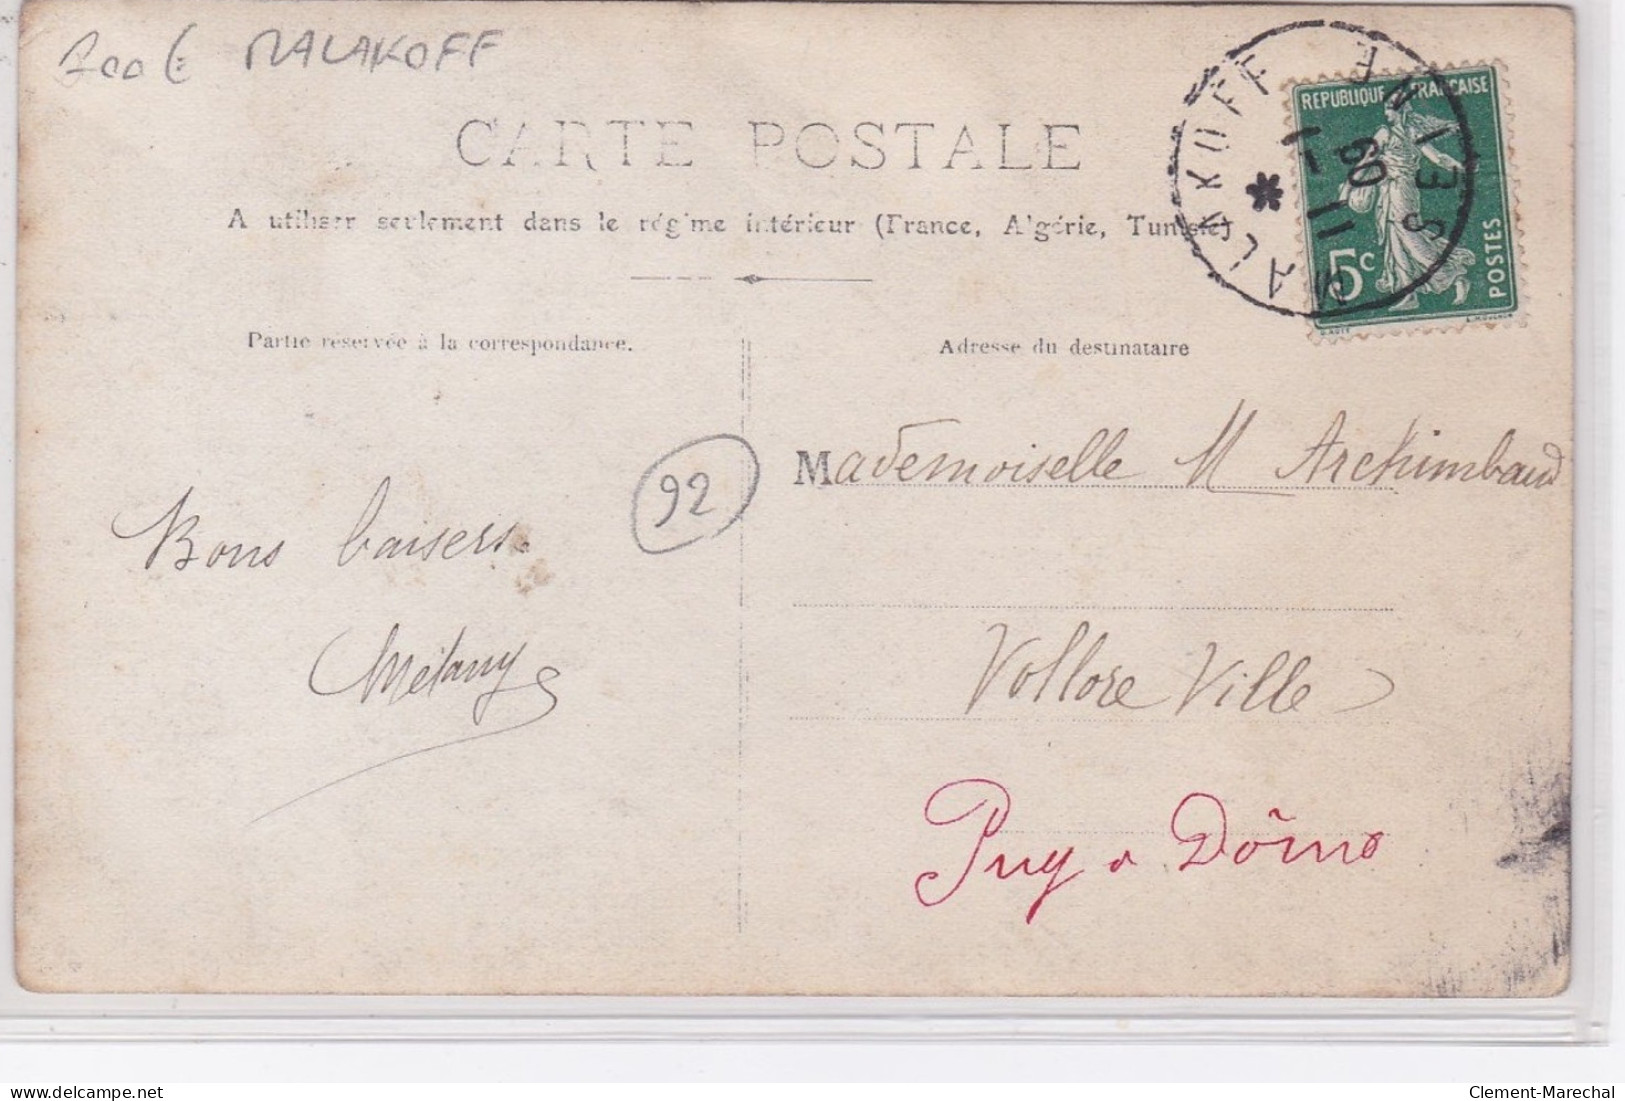 200€ MALAKOFF
MALAKOFF
SEINE
11 -1
09
REPUBLIQUE FRANÇAISE
5c
POSTES
CARTE POSTALE
A utiliser seulement dans le régime intérieur (France, Algérie, Tunisie)
Partie réservée à la correspondance.
Adresse du destinataire
92
Mademoiselle M Archimbaud
Bons baisers.
Mélany
Vollore Ville
Puy de Dôme
delcampe.net
Clement-Marechal